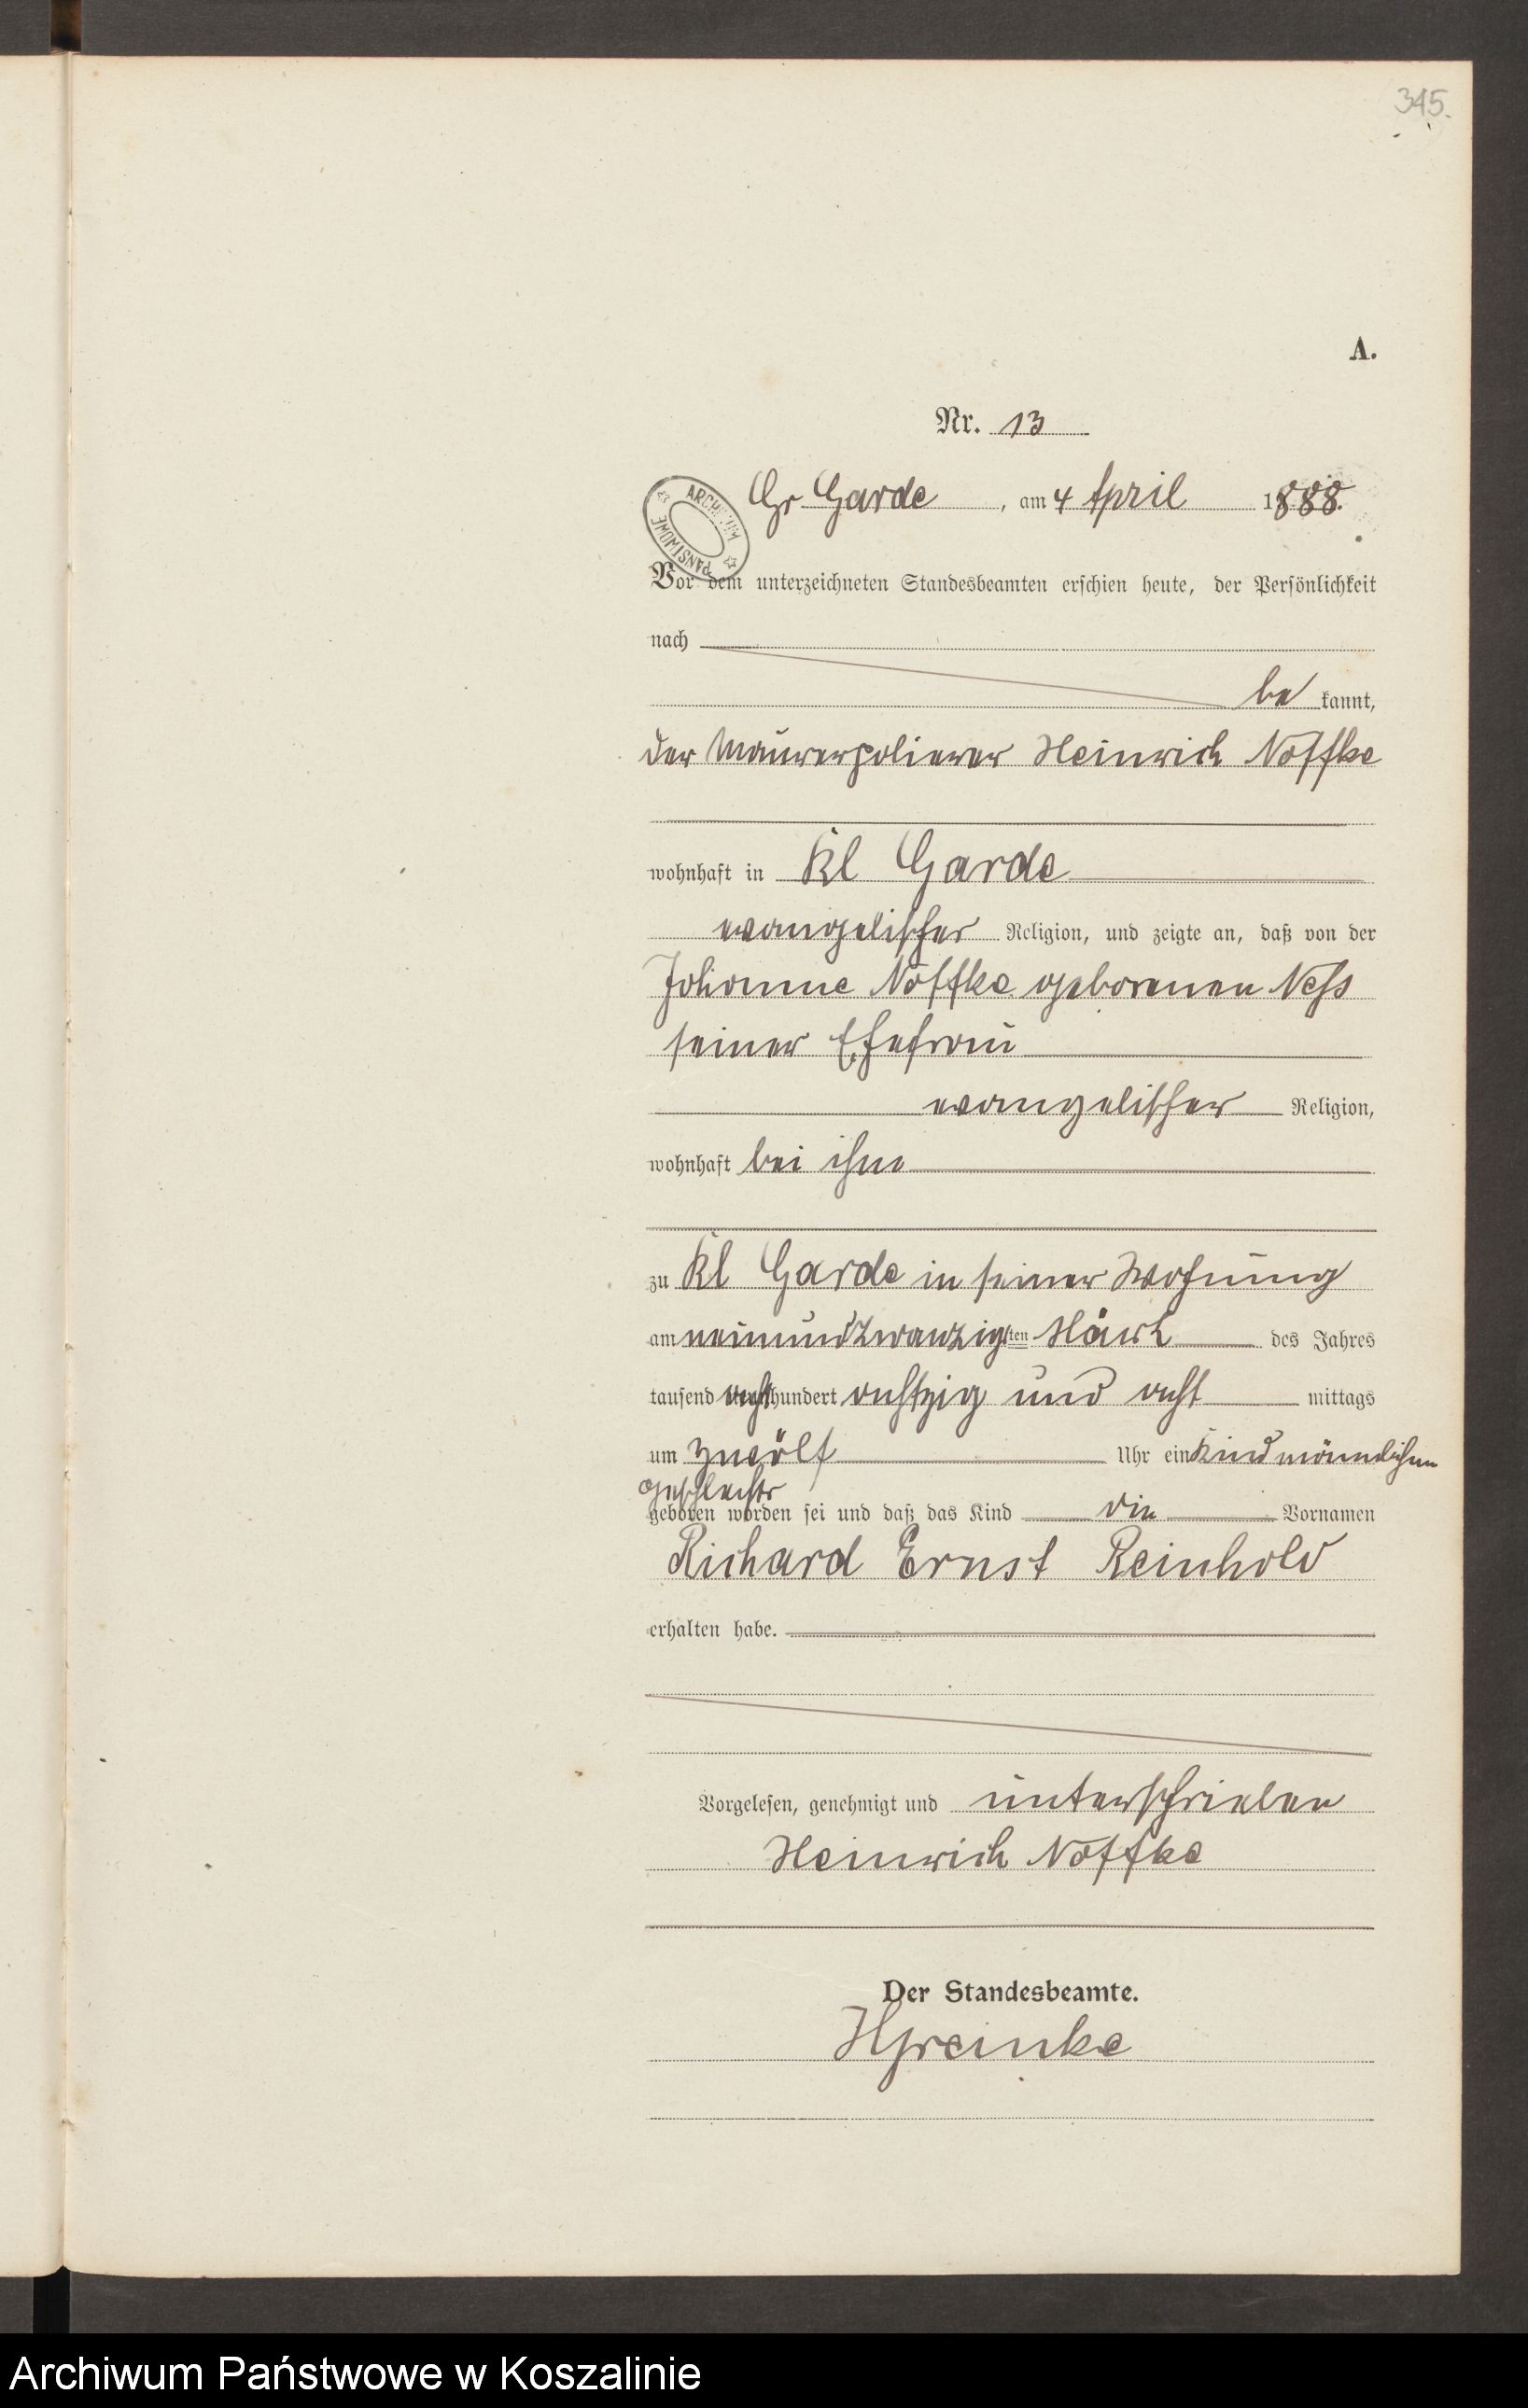 345.
A.
Nr. 13
Gr Garde, am 4 April 1888.
ARCHIWUM PAŃSTWOWE
Vor dem unterzeichneten Standesbeamten erschien heute, der Persönlichkeit
nach
be kannt,
der Maurerpolierer Heinrich Noffke
wohnhaft in Kl Garde
evangelischer Religion, und zeigte an, daß von der
Johanne Noffke geborenen Neß
seiner Ehefrau
evangelischer Religion,
wohnhaft bei ihm
zu Kl Garde in seiner Wohnung
am neunundzwanzigsten März des Jahres
tausend achthundert achtzig und acht mittags
um zwölf Uhr ein Kind männlichen
Geschlechts
geboren worden sei und daß das Kind die Vornamen
Richard Ernst Reinhold
erhalten habe.
Vorgelesen, genehmigt und unterschrieben
Heinrich Noffke
Der Standesbeamte.
Archiwum Państwowe w Koszalinie